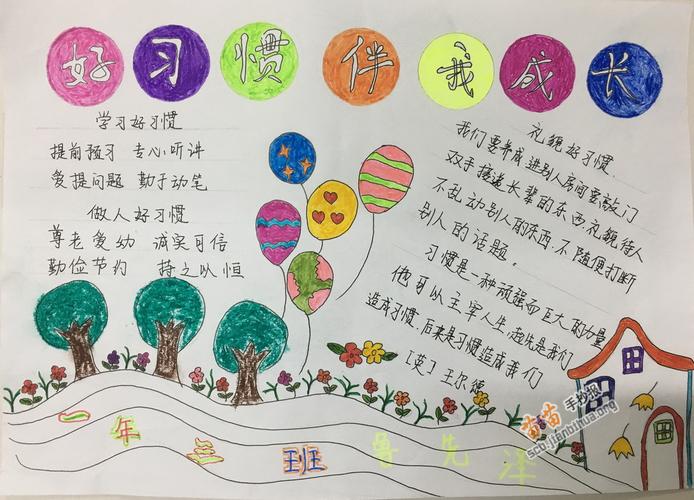 好习惯伴我成长
学习好习惯
提前预习 专心听讲
爱提问题 勤于动笔
做人好习惯
尊老爱幼 诚实可信
勤俭节约 持之以恒
礼貌好习惯
我们要养成进别人房间要敲门
双手接递长辈的东西,礼貌待人
不乱动别人的东西,不随便打断
别人的话题。
习惯是一种顽强而巨大的力量
他可以主宰人生,起先是我们
造成习惯,后来是习惯造成我们
[英]王尔德
一年三班 鲁先泽
苗苗手抄报
scb.jianbihua.org